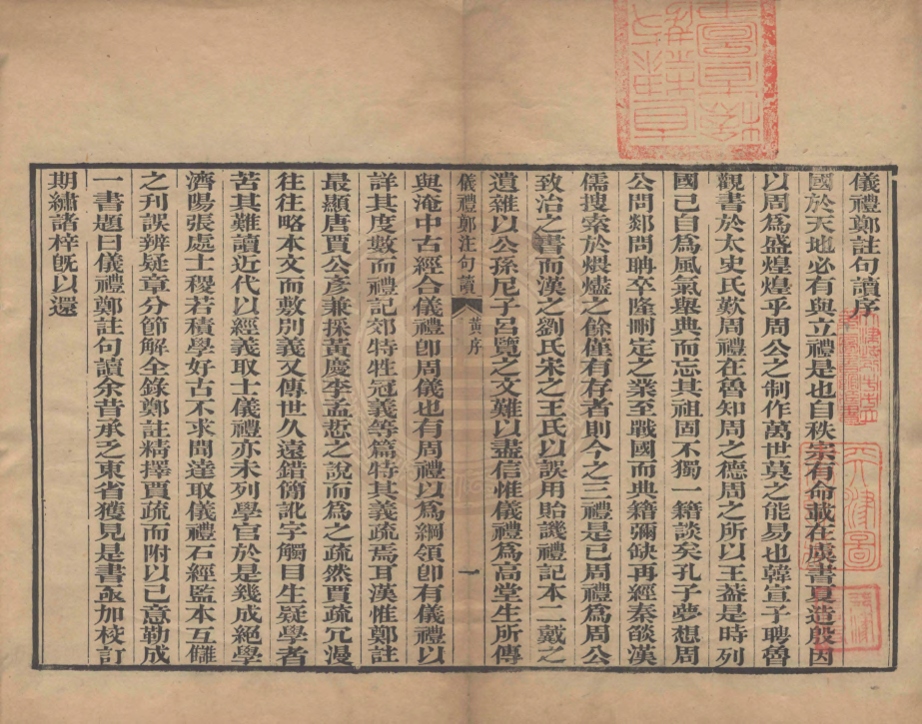 儀禮鄭註句讀序
國於天地必有與立禮是也自秩宗有命載在虞書夏造殷因
以周為盛煌煌乎周公之制作萬世莫之能易也韓宣子聘魯
觀書於太史氏歎周禮在魯知周之德周之所以王葢是時列
國已自為風氣舉典而忘其祖固不獨一籍談矣孔子夢想周
公問郯問聃卒隆刪定之業至戰國而典籍彌缺再經秦燄漢
儒搜索於煨燼之餘僅有存者則今之三禮是已周禮為周公
致治之書而漢之劉氏宋之王氏以誤用貽譏禮記本二戴之
遺雜以公孫尼子呂覽之文難以盡信惟儀禮為高堂生所傳
儀禮鄭注句讀 黃序 一
與淹中古經合儀禮卽周儀也有周禮以為綱領卽有儀禮以
詳其度數而禮記郊特牲冠義等篇特其義疏焉耳漢惟鄭註
最顯唐賈公彥兼採黃慶李孟悊之說而為之疏然賈疏冗漫
往往略本文而敷別義又傳世久遠錯簡訛字觸目生疑學者
苦其難讀近代以經義取士儀禮亦未列學官於是幾成絕學
濟陽張處士稷若積學好古不求聞達取儀禮石經監本互讎
之刊誤辨疑章分節解全錄鄭註精擇賈疏而附以己意勒成
一書題曰儀禮鄭註句讀余昔承乏東省獲見是書亟加校訂
期繡諸梓旣以還